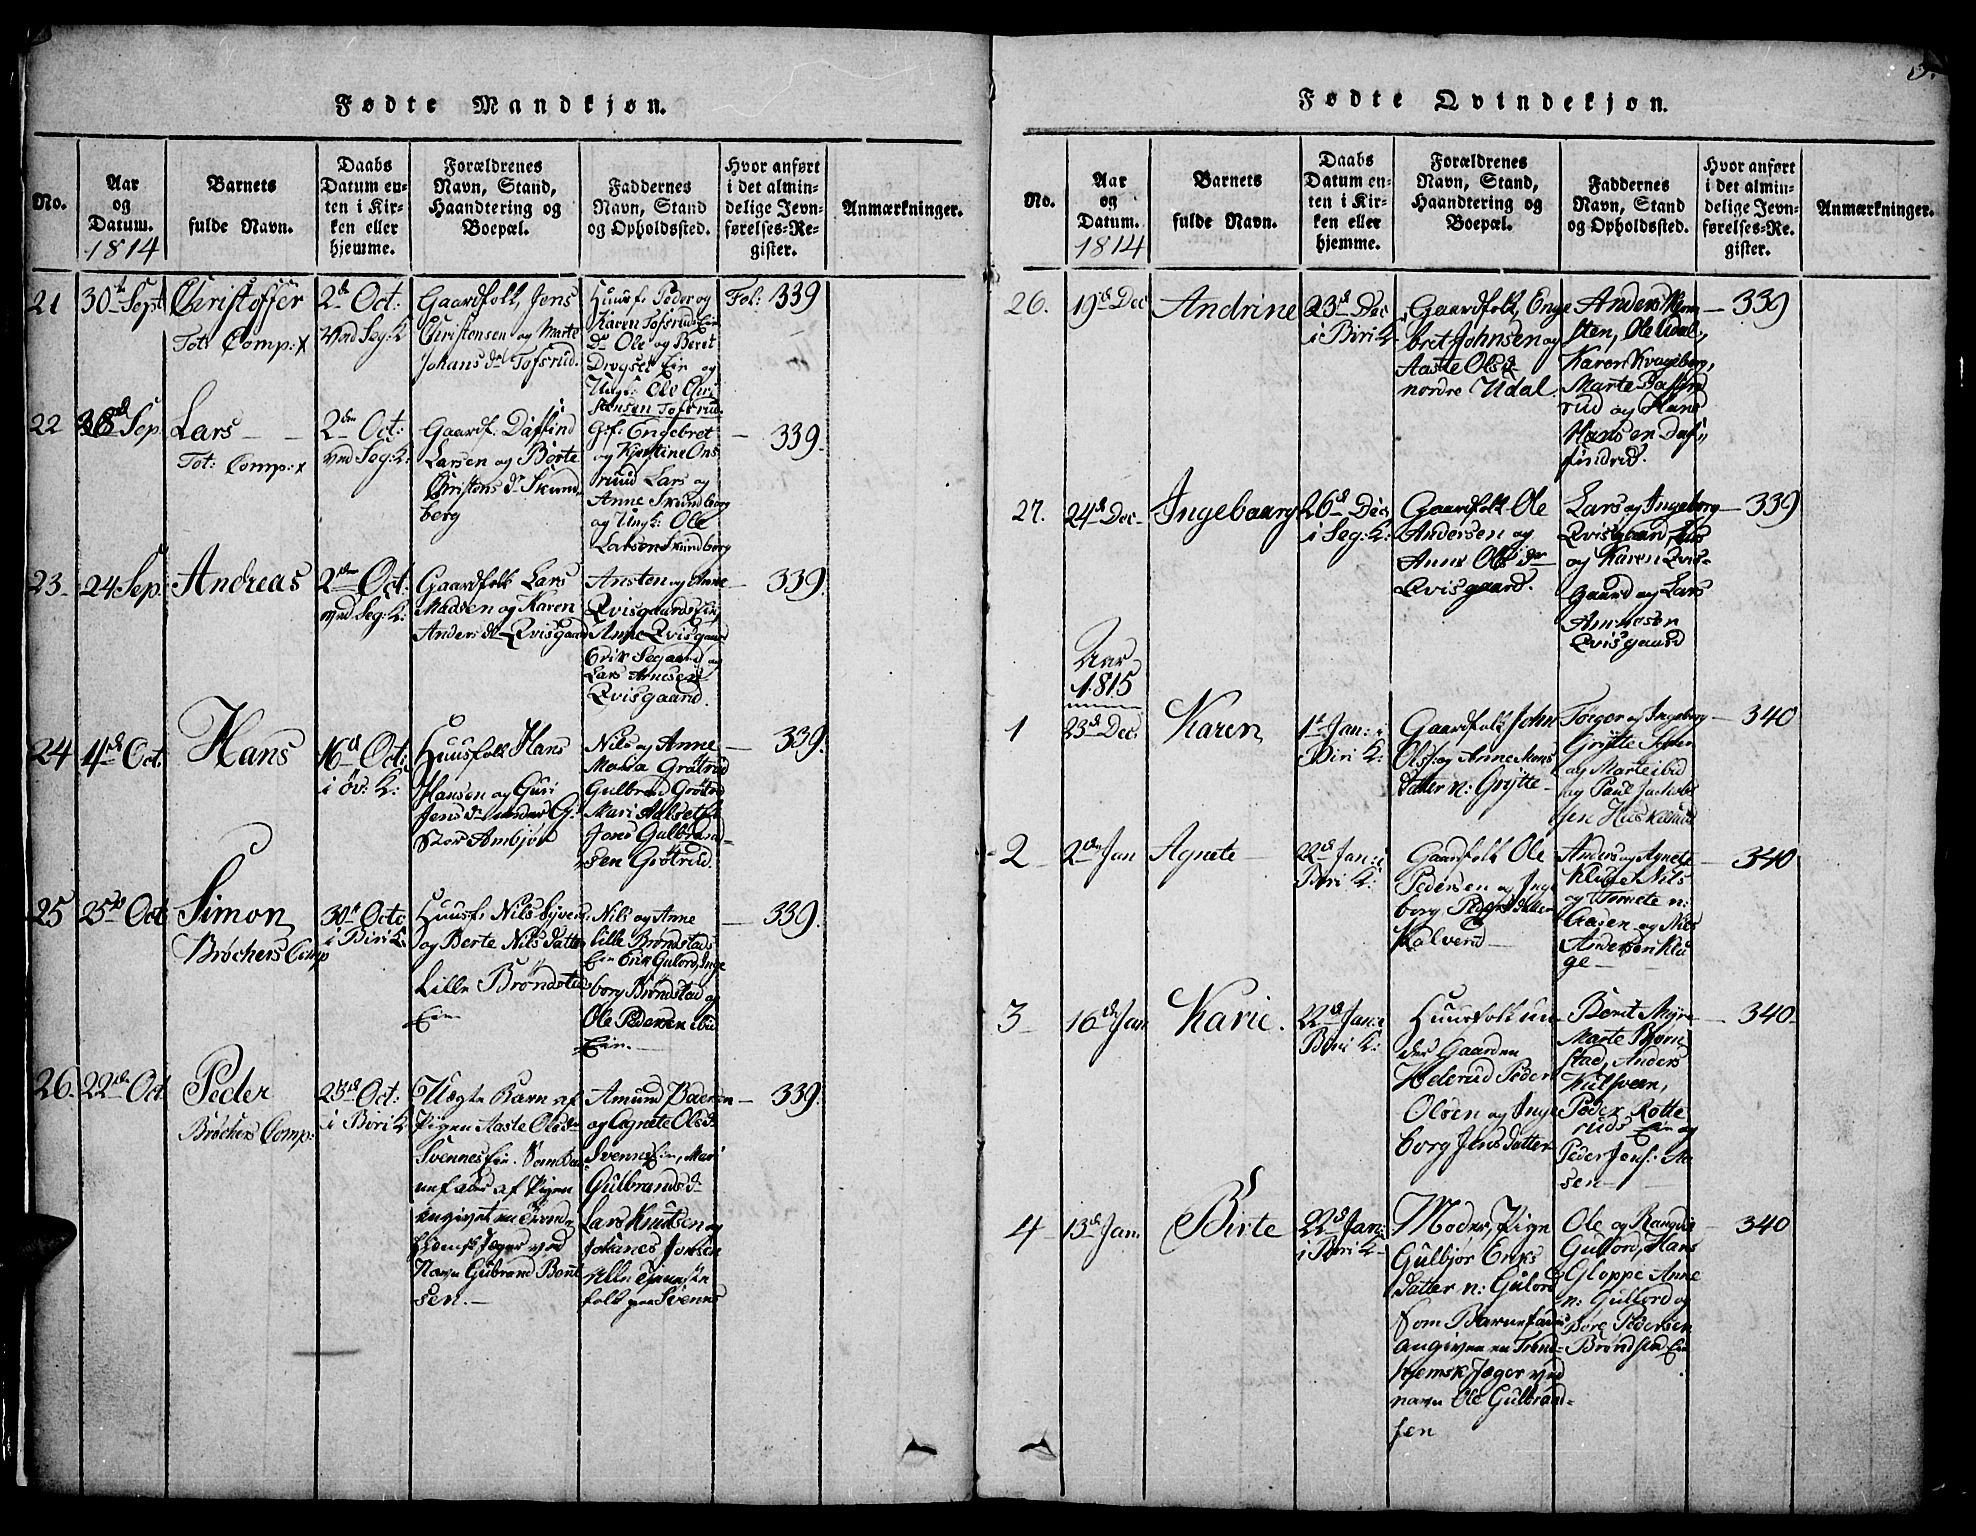 Fødte Mandkjøn.
No.
Aar
og
Datum.
1814
Barnets
fulde Navn.
Daabs
Datum en-
ten i Kir-
ken eller
hjemme.
Forældrenes
Navn, Stand,
Haandtering og
Boepæl.
Faddernes
Navn, Stand
og Opholdssted.
Hvor anført
i det almin-
delige Jevn-
førelses-Re-
gister.
Anmærkninger.
21
30te Sept
Christoffer
Tot: Comp: x
2d Oct:
ved Seg: K
Gaardfolk, Jens
Christensen og Marte
Johans dr Tofsrud.
Huusf. Peder og
Karen Tofsrud Ein
Ole og Beret
Ein og
Ungk: Ole Chri
stensen Tofsrud.
Fol: 339
22
Sep.
Lars
Tot: Comp: x
2den Oct:
ved Seg: K:
Gaardf. Daffind
Larsen og Børte
Christens dr Skund
berg
G:f: Engebret
og Kjerstine Ons
rud Lars og
Anne Skundberg
og Ungk: Ole
Larsen Skundberg
339.
23
24 Sep.
Andreas
2den Oct:
ved Seg: K:
Gaardfolk Lars
Madsen og Karen
Anders dr Qvisgaard
Ansten og Anne
Qvisgaards Ein
Anne Qvisgaard
Erik Segaard og
Lars Arnesen
Qvisgaard.
339.
24
4de Oct.
Hans
16d Oct:
i Øv: K:
Huusfolk Hans
Hansen og Guri
Jens dr under G:
Stor Ambjør
Nils og Anne
Grøtrud
Gulbrand Grøtrud
Mari
Jons Gulbrand-
sen Grøtrud.
339.
25
25de Oct
Simon
Brøchers Comp
30te Octo
i Biri K.
Huusf: Nils Syvers.
og Berte Nils datter
Lille Brøndstads
Ein
Nils og Anne
lille Brøndstads
Ein Erik Gulord, Inge
borg Brøndstad og
Ole Pedersen ibid
Ein.
339.
26.
22de Oct
Peder
Brøchers Comp:
23de Oct:
i Biri K
Uægte Barn af
Pigen Aaste Olsdr
Svennes Ein. Som Bar
nefader af Pigen
angivet en Trond-
hiemsk Jæger ved
Navn Gulbrand Bent
sen.
Amund
og Agnete Olsdr
Svennes Ein, Mari
Gulbrandsdr
Lars Knutsen og
Johanes Jonsen
alle Tieneste
folk paa Svennes
339.
Fødte Qvindekjøn.
3.
No.
Aar
og
Datum.
1814
Barnets
fulde Navn.
Daabs
Datum en-
ten i Kir-
ken eller
hjemme.
Forældrenes
Navn, Stand,
Haandtering og
Boepæl.
Faddernes
Navn, Stand
og Opholdssted.
Hvor anført
i det almin-
delige Jevn-
førelses-Re-
gister.
Anmærkninger.
26.
19de Dec
Andrine
23de Dec
i Biri K.
Gaardfolk, Enge
bret Johnsen og
Aaste Olsdr
nordre Udal.
Anders Kjem
sten, Ole Udal,
Karen Kvageberg,
Marte Daffin
rud og Hans
Hansen Daf-
findrud.
339
27.
24de Dec
Ingebaarg
26de Dec
i Seg: K:
Gaardfolk Ole
Andersen og
Anne Olsdr
Qvisgaard.
Lars og Ingeborg
Qvisgaard,
og Karen Qvis-
gaard og Lars
Qvisgaard
339
Aar
1815
1
23de Dec.
Karen
1te Jan: i
Biri K:
Gaardfolk John
Ols: og Anne Mons
datter n: Grytte
Torger og Ingeborg
Grytte
og Marte ibid
og Paul Jacob
sen Huskelhud
340
2
2den Jan
Agnete
22de Jan: i
Biri K:
Gaardfolk Ole
Pedersen og Inge
borg Peders datter
Kalverud
Anders og Agnete
Kluge Nils
og Tornete n:
Aasen og Nils
Andersen Klu
ge
340
3
16de Jan
Karie.
22de Jan: i
Biri K:
Huusfolk un
der Gaarden
Helerud Peder
Olsen og Inge
borg Jens datter
Berit Myre
Marte Bjørn
stad, Anders
Kulsveen,
Peder Rotte
ruds Ein og
Peder Jens:
sen
340
4
13de Jan
Birte
22de Jan:
i Biri K
Moder, Pige
Gulbjør Eriks
datter n: Gulord
Som Barnefader
angiven en Trond-
hjemsk Jæger ved
navn Ole Gulbrand-
sen
Ole og Rangdi
Gullord, Hans
Gloppe Anne
n: Gullord og
Tore Pedersen
Brøndstad Ein
340